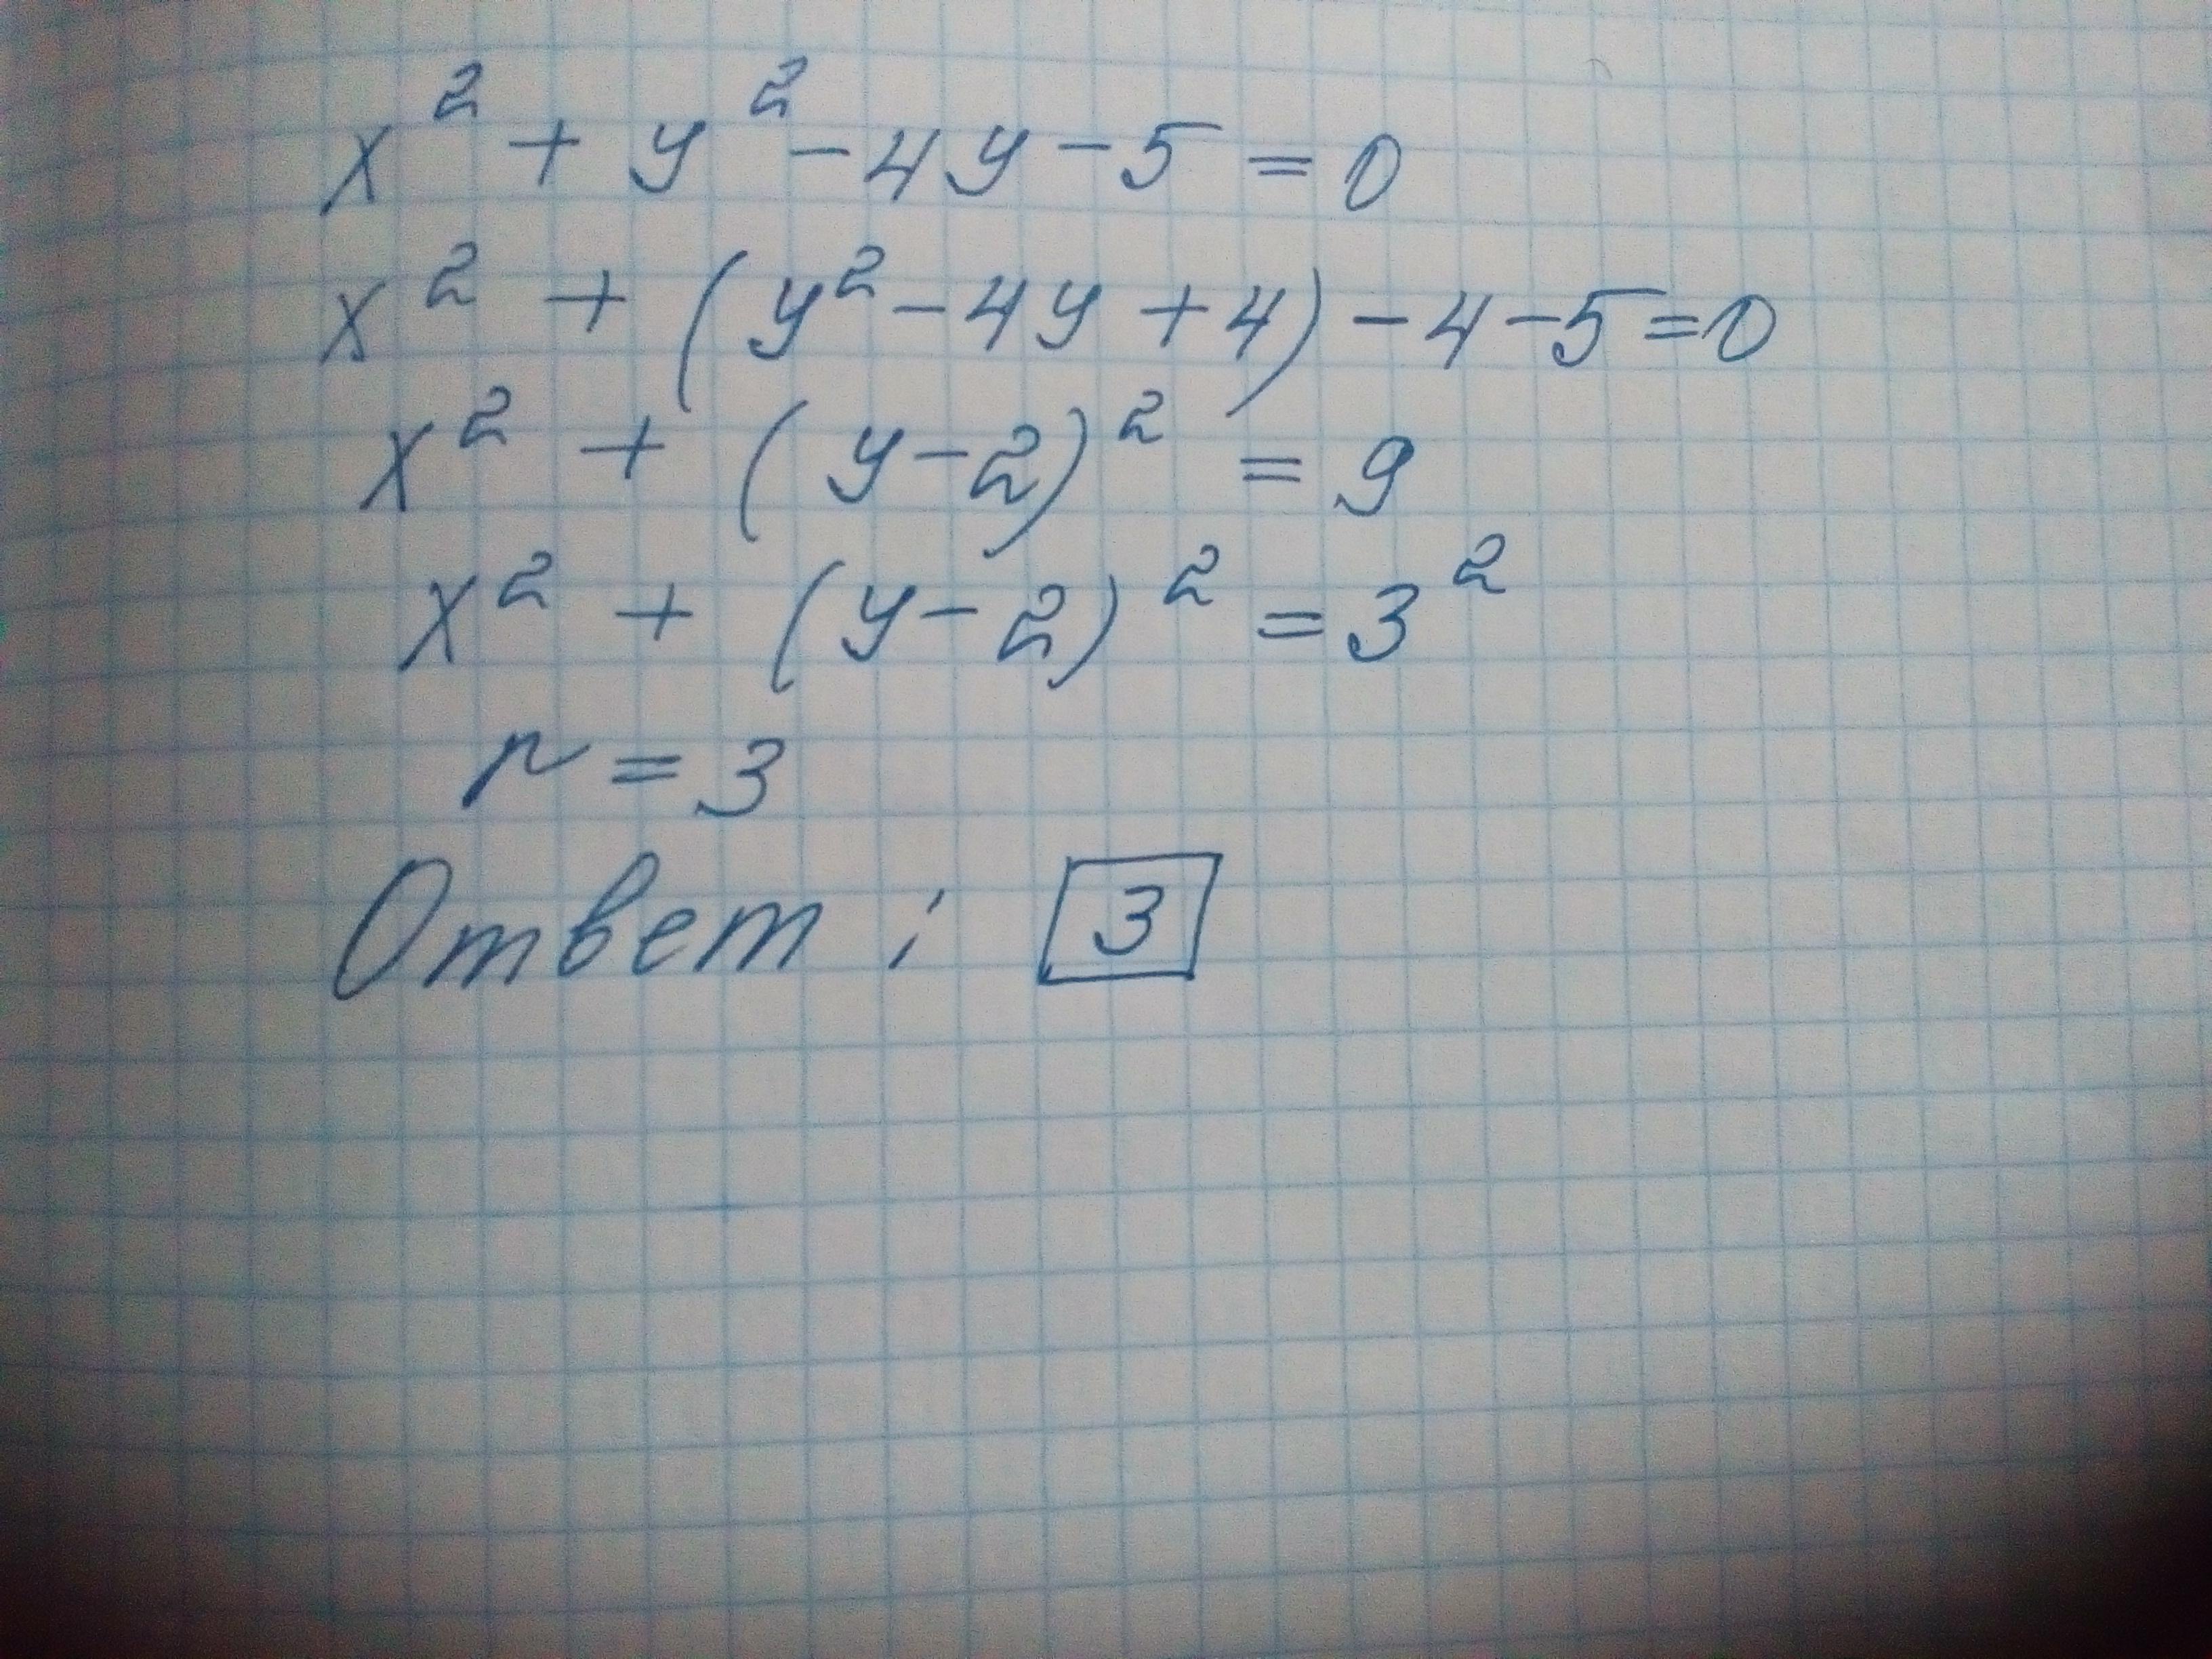 x² + y² - 4y - 5 = 0
x² + (y² - 4y + 4) - 4 - 5 = 0
x² + (y - 2)² = 9
x² + (y - 2)² = 3²
r = 3
Ответ : 3